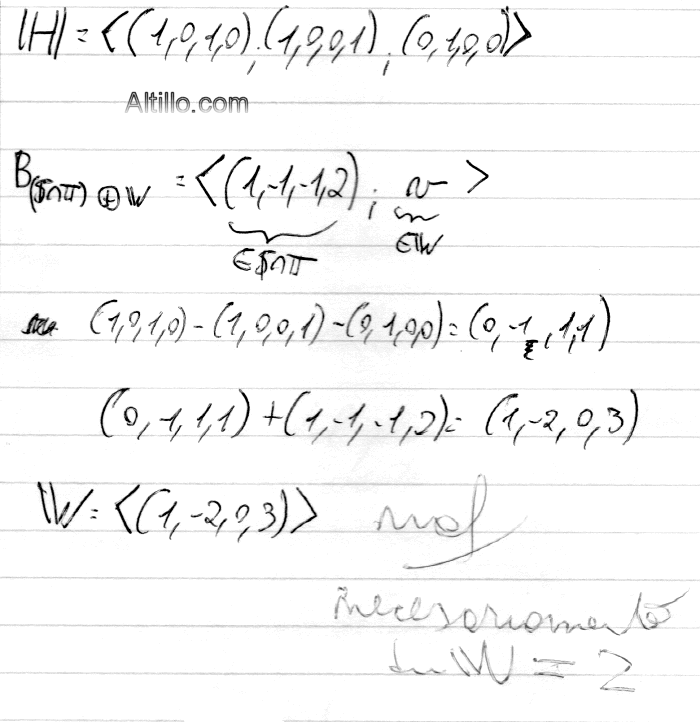 ℍ = <(1,0,1,0); (1,0,0,1); (0,1,0,0)>
Altillo.com
B(𝕊∩𝕋) ⊕ 𝕎 = <(1,-1,-1,2); v>
∈𝕊∩𝕋 ∈𝕎
(1,0,1,0) - (1,0,0,1) - (0,1,0,0) = (0,-1,1,1)
(0,-1,1,1) + (1,-1,-1,2) = (1,-2,0,3)
𝕎 = <(1,-2,0,3)> mal
necesariamente
dim 𝕎 = 2